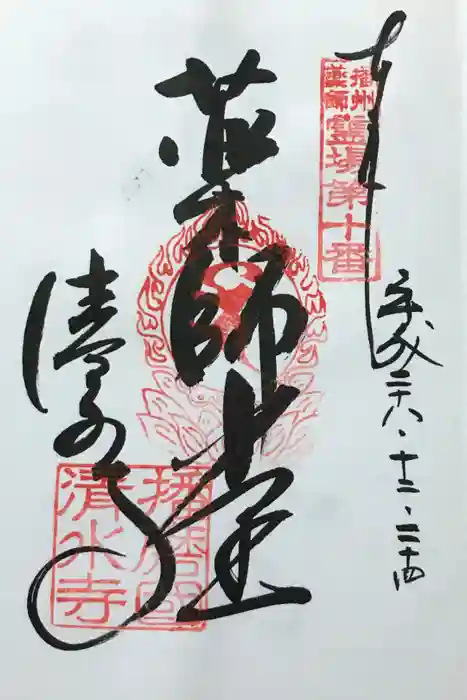 奉拝
平成二十八・十二・二十四
播州薬師霊場第十番
薬師堂
清水寺
播磨國清水寺